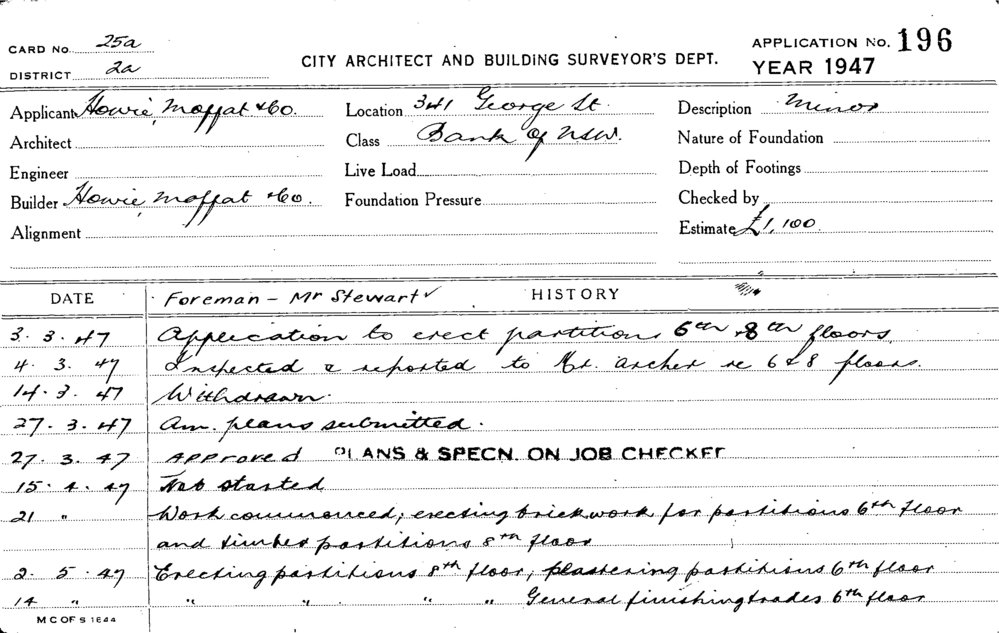 CARD No. 25a
DISTRICT 2a
CITY ARCHITECT AND BUILDING SURVEYOR'S DEPT.
APPLICATION No. 196
YEAR 1947
Applicant Howie, Moffat & Co. Location 341 George St. Description Minor
Architect Class Bank of NSW. Nature of Foundation
Engineer Live Load Depth of Footings
Builder Howie, Moffat & Co. Foundation Pressure Checked by
Alignment Estimate £1,100
DATE Foreman - Mr Stewart ✓ HISTORY
3. 3. 47 Application to erect partition 6th & 8th floors.
4. 3. 47 Inspected & reported to Mr. Archer re 6 & 8 floors.
14. 3. 47 Withdrawn.
27. 3. 47 Am. plans submitted.
27. 3. 47 Approved PLANS & SPECN. ON JOB CHECKED
15. 4. 47 Not started
21 " Work commenced; erecting brickwork for partitions 6th floor
and timber partitions 8th floor
2. 5. 47 Erecting partitions 8th floor, plastering partitions 6th floor
14 " " " " " General finishing trades 6th floor
M C OF S 1644